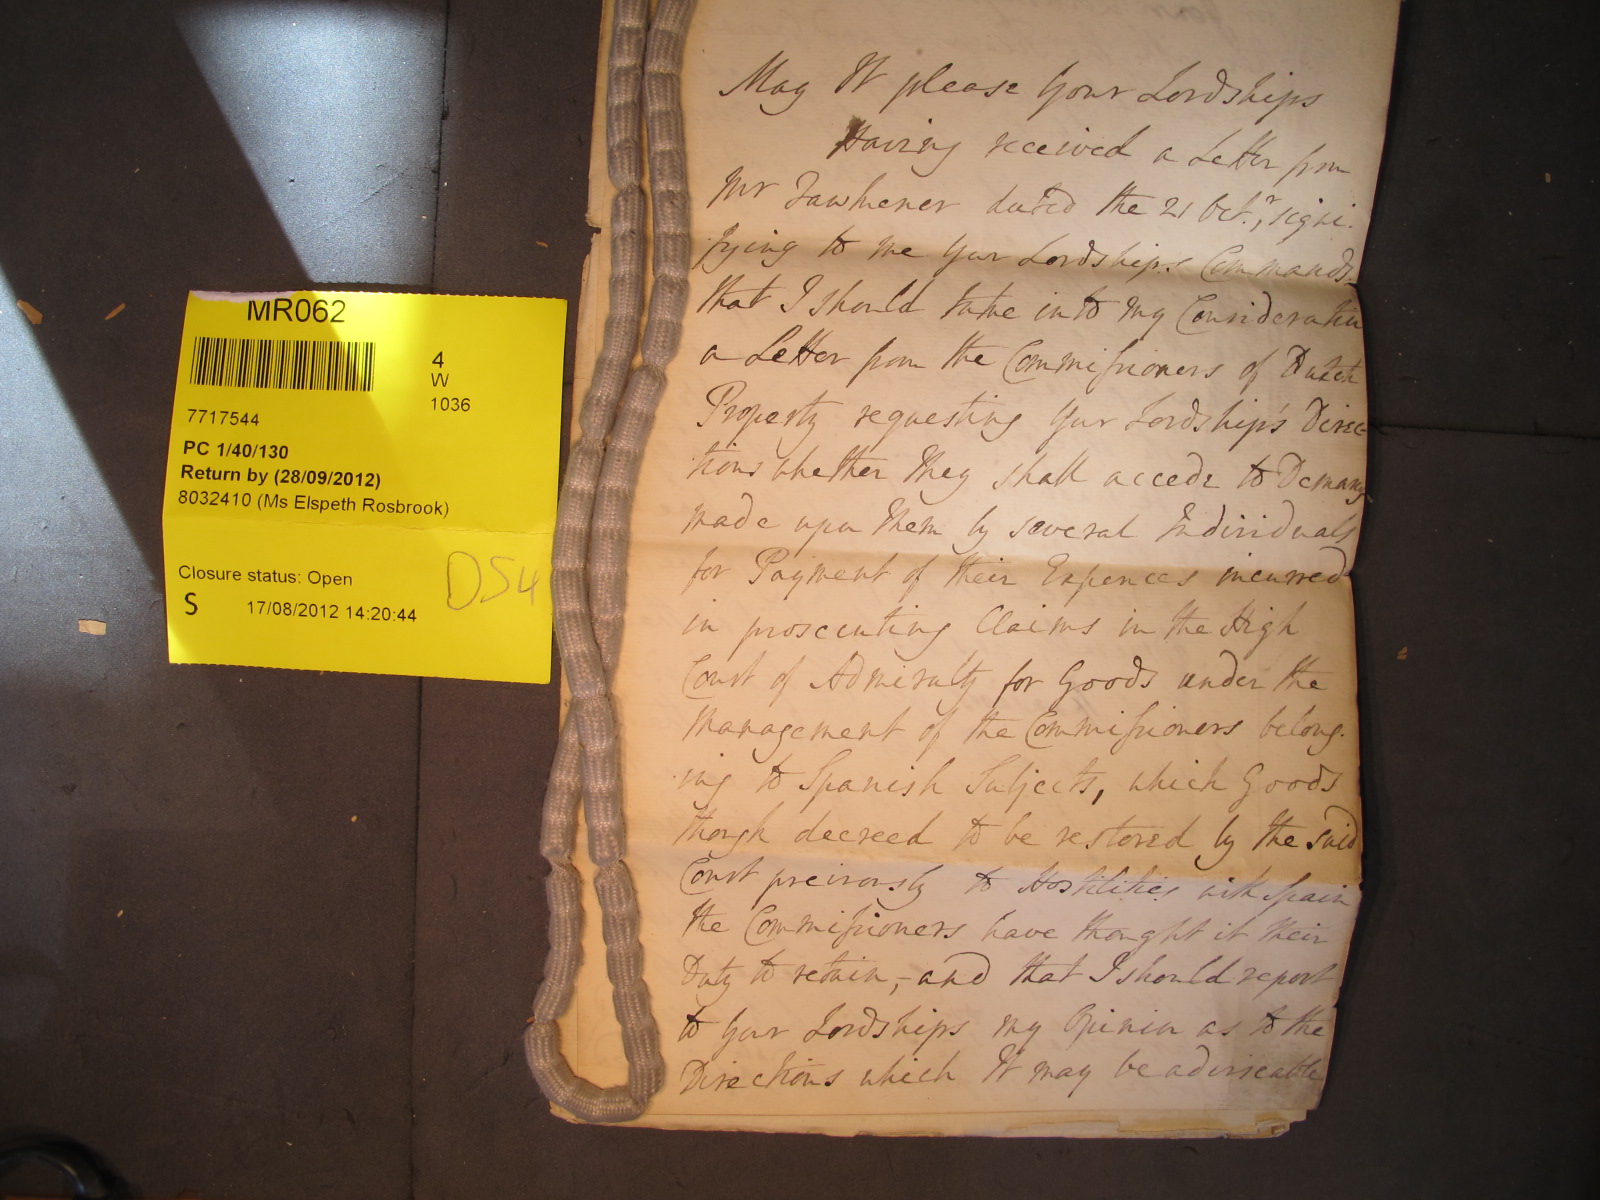 MR062
4
W
1036
7717544
PC 1/40/130
Return by (28/09/2012)
8032410 (Ms Elspeth Rosbrook)
Closure status: Open
S 17/08/2012 14:20:44
DS4
May It please Your Lordships
Having received a Letter from
Mr Fawkener dated the 21 Oct.r, signi-
fying to me Your Lordships Commands
that I should take into my Consideration
a Letter from the Commissioners of Dutch
Property requesting Your Lordship's Direc-
tions whether they shall accede to Demands
made upon them by several Individuals
for Payment of their Expences incurred
in prosecuting Claims in the High
Court of Admiralty for Goods under the
Management of the Commissioners belong-
ing to Spanish Subjects, which Goods
though decreed to be restored by the said
Court previously to Hostilities with Spain
the Commissioners have thought it their
Duty to retain, - and that I should report
to Your Lordships my Opinion as to the
Directions which It may be adviseable